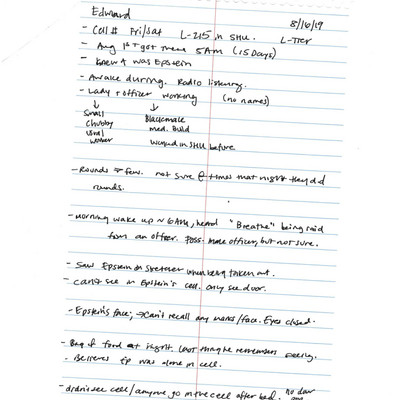 Edward 8/16/19
- Cell # Fri/Sat L-215 in SHU. L-Tier
- Aug 1st got there 5AM (15 Days)
- Knew it was Epstein
- Awake during. Radio listening.
- Lady + officer working (no names)
↓ ↓
Small Black male
Chubby med. Build
worker worked in SHU before
- Rounds few. not sure @ times that night they did
rounds.
- Morning wake up ~ 6AM, heard "Breathe" being said
from an officer. Poss. male officer, but not sure.
- Saw Epstein on stretcher when being taken out.
- Can't see in Epstein's cell. only see door.
- Epstein's face, → Can't recall any marks/face. Eyes closed.
- Bag of food at night. Last thing he remembers seeing.
- Believes Ep was alone in cell.
- didn't see cell/anyone go in the cell after bed. no door